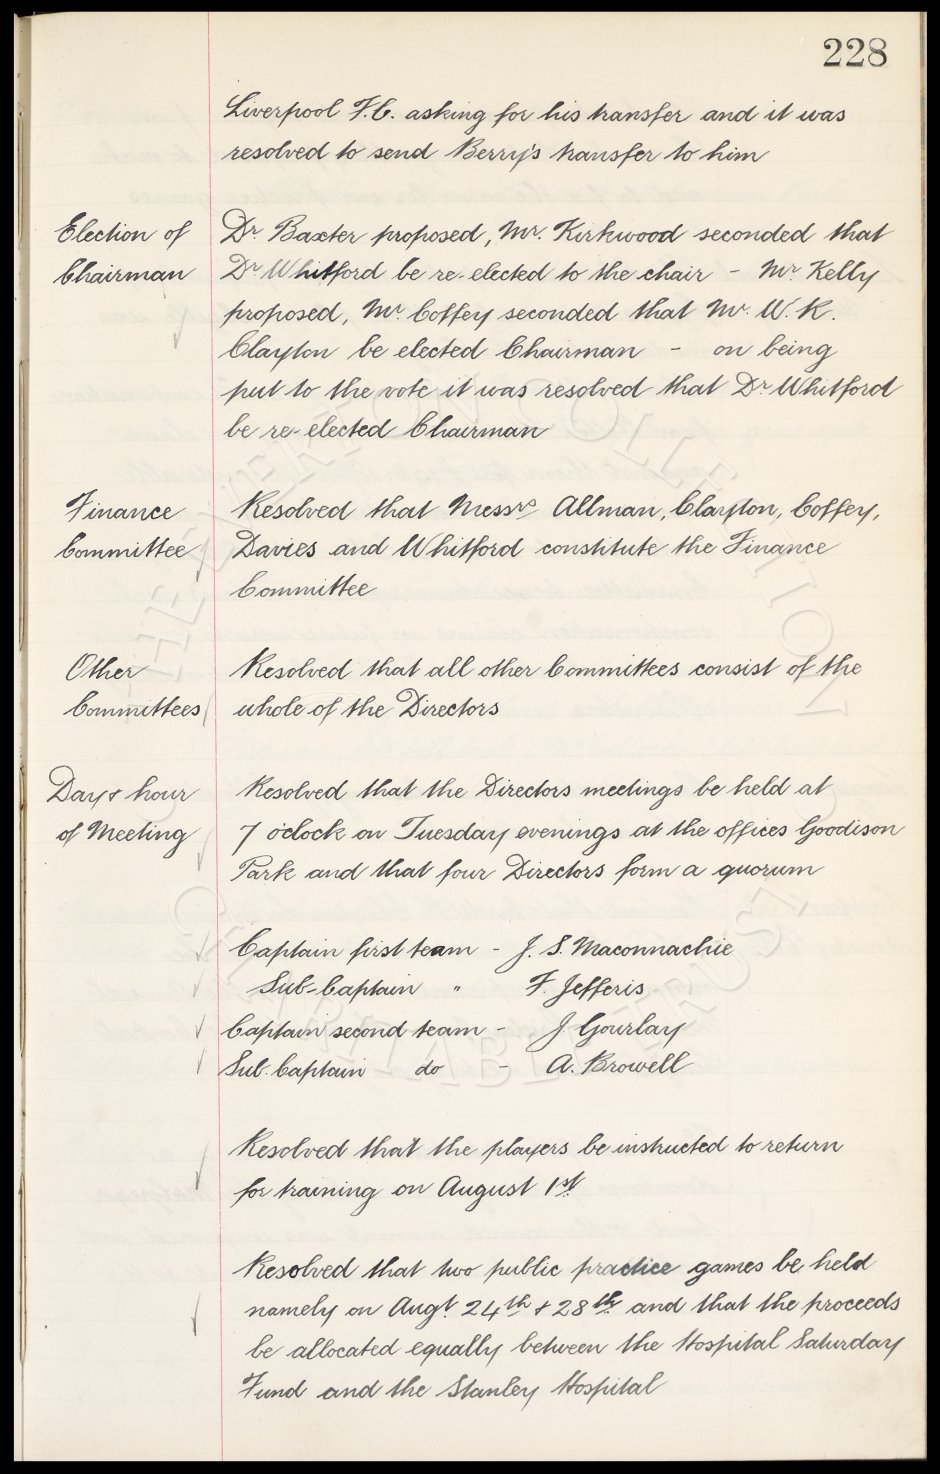 228
Liverpool F.C. asking for his transfer and it was
resolved to send Berry's transfer to him
Election of Chairman
Dr. Baxter proposed, Mr. Kirkwood seconded that
Dr Whitford be re-elected to the chair - Mr Kelly
proposed, Mr. Coffey seconded that Mr. W. R.
Clayton be elected Chairman - on being
put to the vote it was resolved that Dr Whitford
be re-elected Chairman
Finance Committee
Resolved that Messrs Allman, Clayton, Coffey,
Davies and Whitford constitute the Finance
Committee
Other Committees
Resolved that all other Committees consist of the
whole of the Directors
Day & hour of Meeting
Resolved that the Directors meetings be held at
7 o'clock on Tuesday evenings at the offices Goodison
Park and that four Directors form a quorum
Captain first team - J. S. Maconnachie
Sub-Captain " F. Jefferis
Captain second team - J Gourlay
Sub. Captain do - A. Browell
Resolved that the players be instructed to return
for training on August 1st
Resolved that two public practice games be held
namely on Augt. 24th & 28th and that the proceeds
be allocated equally between the Hospital Saturday
Fund and the Stanley Hospital
THE EVERTON COLLECTION
CHARITABLE TRUST